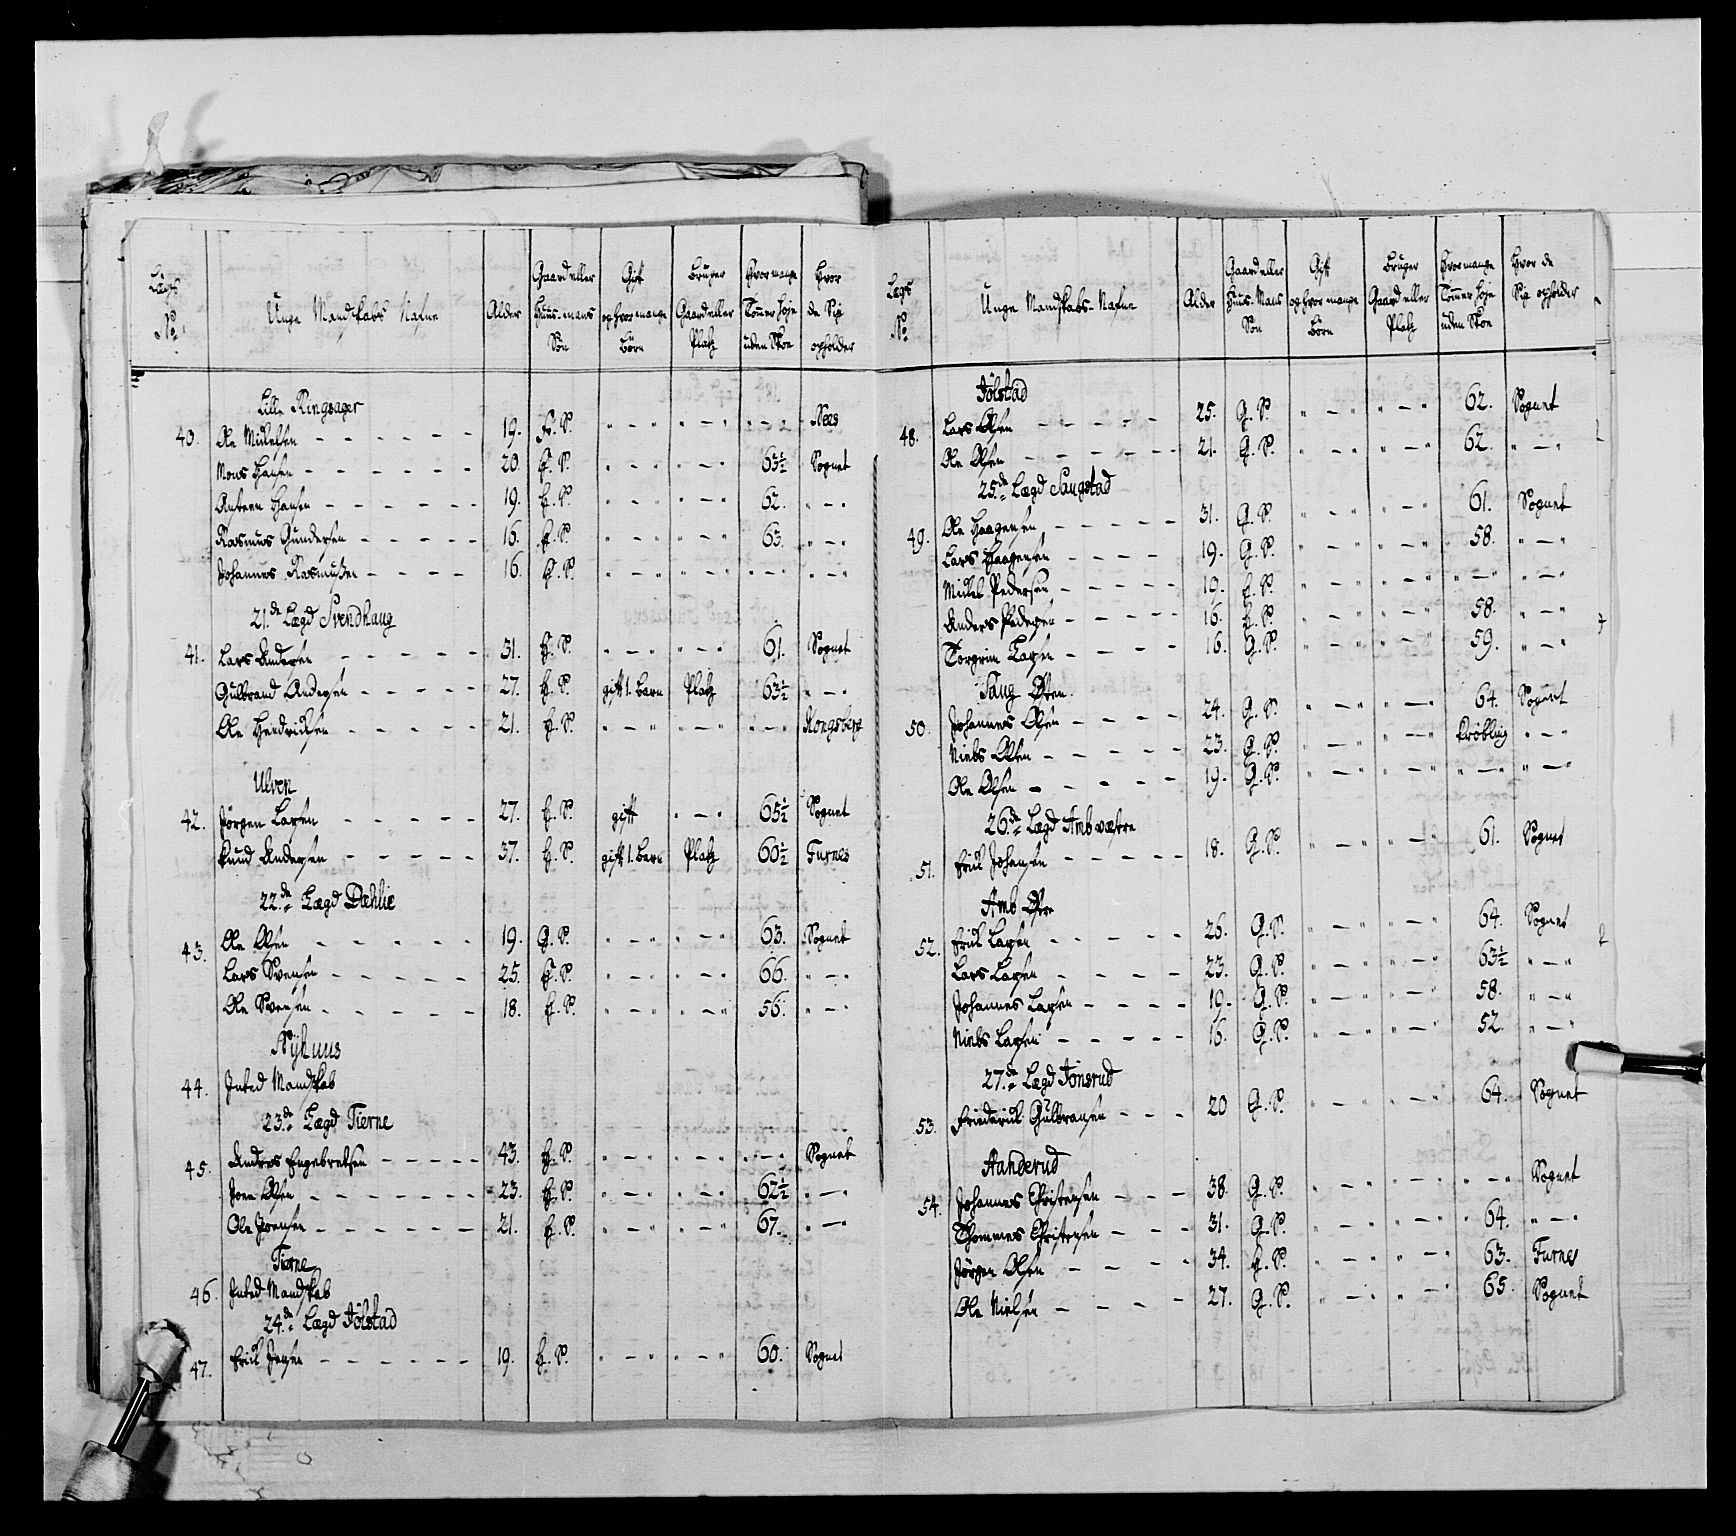 Lægs No | Unge Mandskabs Nafne | Alder | Gaard eller Huus-mans Søn | Gift og hvor mange Børn | Bruger Gaard eller Platz | Hvor mange Tommer høje uden Skoe | Hvor de Sig opholder
Lille Ringsager
40. Ole Mickelsen – – – – – – 19. H. S. " – " " – " " – " Nees
Mons Hansen – – – – – – 20. H. S. " – " " – " 63½ Sognet
Anders Hansen – – – – – – 19. H. S. " – " " – " 62. " – "
Rasmus Gundersen – – – – – 16. H. S. " – " " – " 63. " – "
Johannes Rasmußen – – – – 16. H. S. " – " " – " " – " " – "
21.de Lægd Svendhaug
41. Lars Andersen – – – – – 31. H. S. " – " " – " 61. Sognet
Gulbrand Andersen – – – – 27. H. S. gift 1. Barn Platz 63½ " – "
Ole Hendricksen – – – – 21. H. S. " – " " – " " – " Kongsberg
Ulven
42. Jörgen Larsen – – – – – 27. H. S. gift " – " 65½ Sognet
Knud Andersen – – – – – 37. H. S. gift 1. Barn Platz 60½ Furnes
22.de Lægd Dæhlie
43. Ole Olsen – – – – – 19. G. S. " – " " – " 63. Sognet
Lars Svensen – – – – – 25. H. S. " – " " – " 66. " – "
Ole Svensen – – – – – 18. H. S. " – " " – " 56. " – "
Nÿhuus
44. Inted Mandskab
23.de Lægd Tierne
45. Anders Engebretsen – – – – – 43. H. S. " – " " – " " – " Sognet
Joen Olsen – – – – – – 23. H. S. " – " " – " 62½ " – "
Ole Joensen – – – – – – 21. H. S. " – " " – " 67. " – "
Tierne
46. Inted Mandskab
24.de Lægd Jölstad
47. Erick Jensen – – – – – – 19. H. S. " – " " – " 60. Sognet
Lægs No | Unge Mandskabs-Nafne | Alder | Gaard eller Huus-Mans Søn | Gift og hvor mange Børn | Bruger Gaard eller Platz | Hvor mange Tommer høje uden Skoe | Hvor de Sig opholder
Jölstad
48. Lars Olsen – – – – – 25. G. S. " – " " – " 62. Sognet
Ole Olsen – – – – – – 21. G. S. " – " " – " 62. " – "
25.de Lægd Saugstad
49. Ole Haagensen – – – – – 31. G. S. " – " " – " 61. Sognet
Lars Haagensen – – – – 19. G. S. " – " " – " 58. " – "
Mickel Pedersen – – – – – 19. H. S. " – " " – " " – " " – "
Anders Pedersen – – – – 16. H. S. " – " " – " 58. " – "
Torgrim Larsen – – – – 16. G. S. " – " " – " 59. " – "
Saug Øvre
50. Johannes Olsen – – – – 24. G. S. " – " " – " 64. Sognet
Niels Olsen – – – – – 23. G. S. " – " " – " Krøbling " – "
Ole Olsen – – – – 19. G. S. " – " " – " " – " " – "
26.de Lægd Amb væstre
51. Erick Johansen – – – – – 18. G. S. " – " " – " 61. Sognet
Amb Øvre
52. Erick Larsen – – – – – 26. G. S. " – " " – " 64. Sognet
Lars Larsen – – – – – 23. G. S. " – " " – " 63½ " – "
Johannes Larsen – – – – 19. G. S. " – " " – " 58. " – "
Niels Larsen – – – – – 16. G. S. " – " " – " 52. " – "
27.de Lægd Jonsrud
53. Friederick Gulbransen – – – 20 G. S. " – " " – " 64. Sognet
Aanderud
54. Johannes Christensen – – – 38. G. S. " – " " – " " – " Sognet
Thommes Christensen – – – 31. G. S. " – " " – " 64. " – "
Jörgen Olsen – – – – 34. H. S. " – " " – " 63. Furnes
Ole Nielsen – – – – – 27. G. S. " – " " – " 65. Sognet